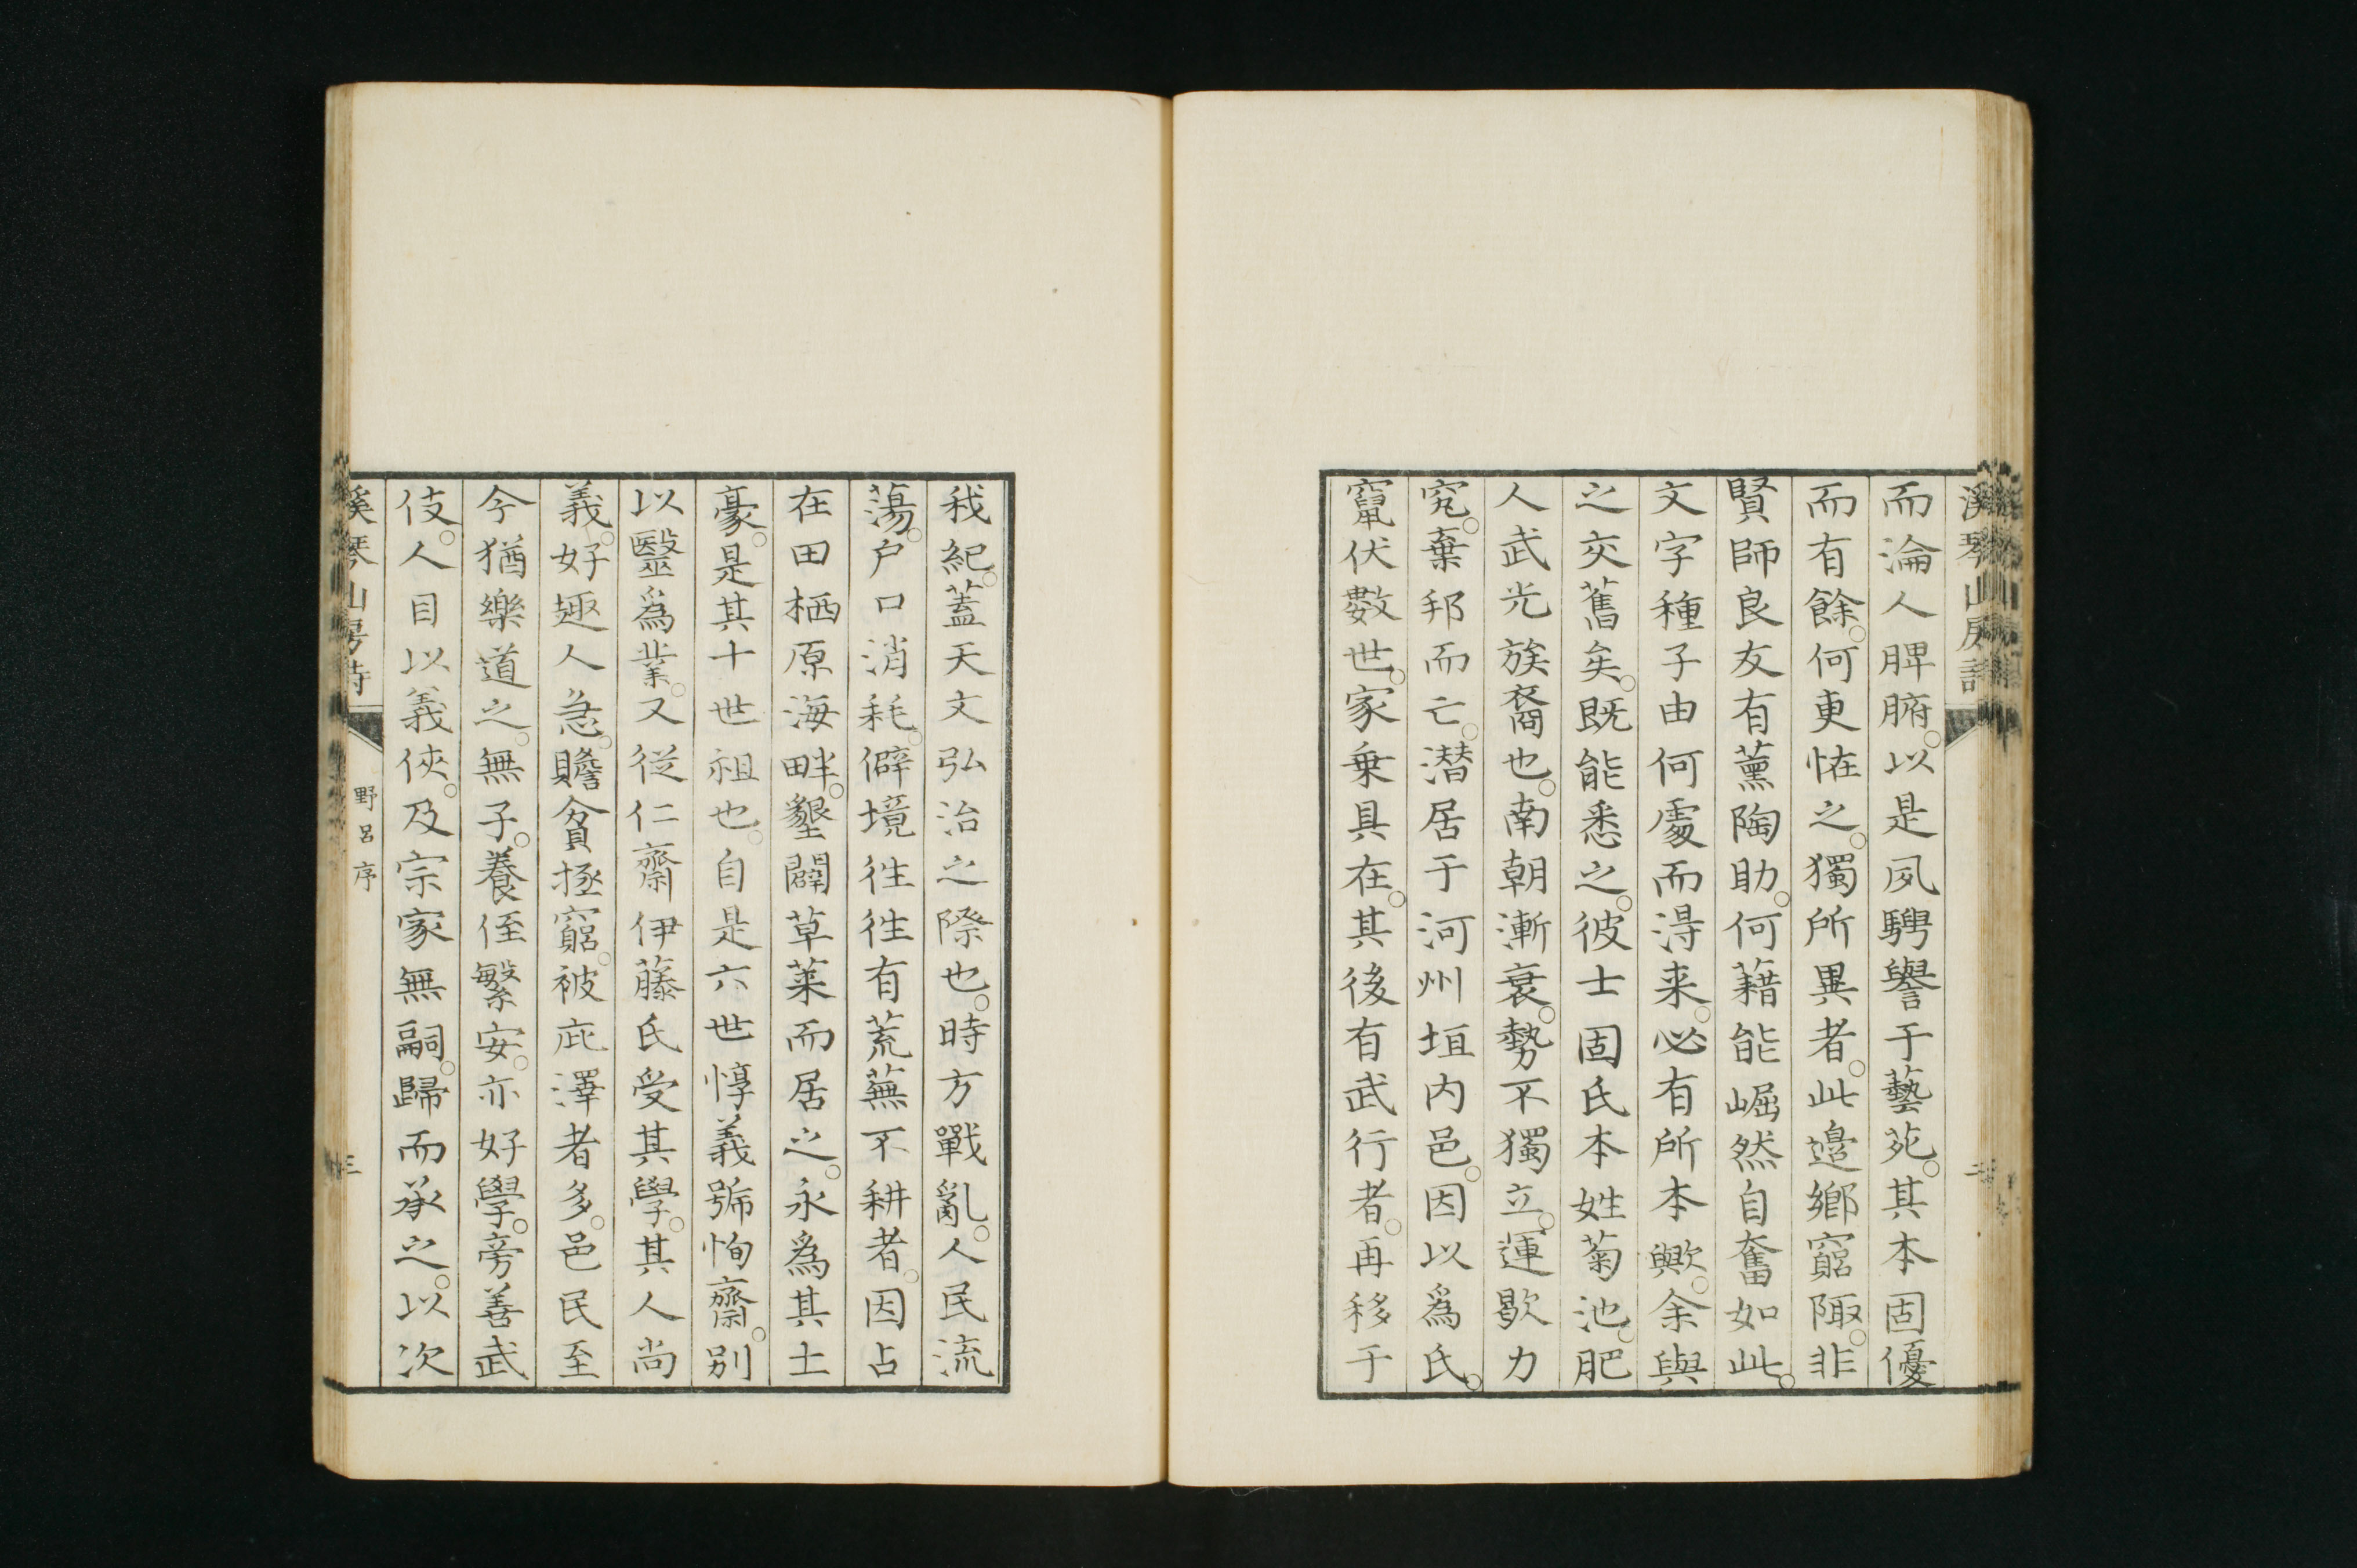 而淪人脾腑。以是夙騁譽于藝苑。其本固優
而有餘。何更恠之。獨所異者。此邉鄉窮陬。非
賢師良友有薰陶助。何藉能崛然自奮如此。
文字種子由何處而淂来。必有所本歟。余與
之交舊矣。既能悉之。彼士固氏本姓菊池。肥
人武光族裔也。南朝漸衰。勢不獨立。運歇力
究。棄邦而亡。潜居于河州垣内邑。因以爲氏。
竄伏數世。家乗具在。其後有武行者。再移于
我紀。蓋天文弘治之際也。時方戰亂。人民流
蕩。户口消耗。僻境徃徃有荒蕪不耕者。因占
在田栖原海畔。墾闢草莱而居之。永爲其土
豪。是其十世祖也。自是六世惇義號恂齋。别
以毉爲業。又従仁齋伊藤氏受其學。其人尚
義。好趣人急。贍貧拯窮。被庇澤者多。邑民至
今猶樂道之。無子。養侄繁安。亦好學。旁善武
伎。人目以義俠。及宗家無嗣。歸而承之。以次
溪琴山房詩
野呂序
三